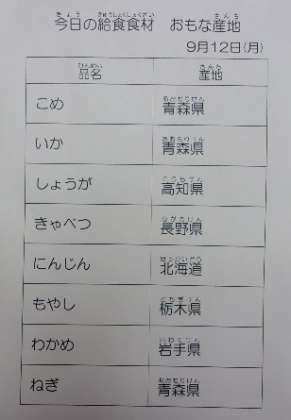 今日の給食食材 おもな産地
9月12日(月)
品名 産地
こめ 青森県
いか 青森県
しょうが 高知県
きゃべつ 長野県
にんじん 北海道
もやし 栃木県
わかめ 岩手県
ねぎ 青森県